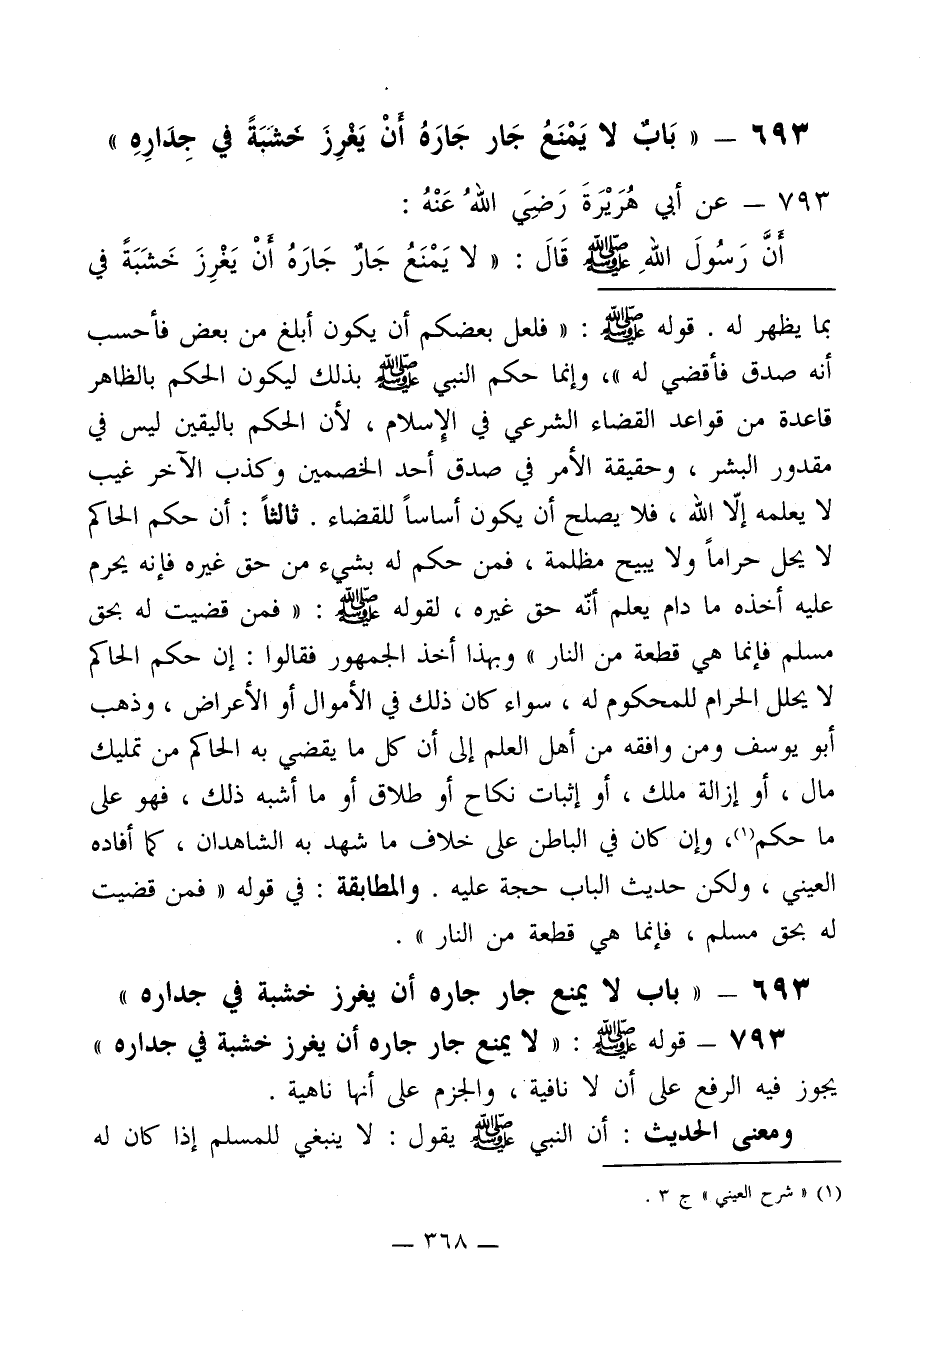 ٦٩٣ – « بَابٌ لا يَمْنَعُ جَار جَارَهُ أَنْ يَغْرِزَ خَشبَةً في جِدَارِهِ »
٧٩٣ – عن أبي هُرَيْرَةَ رَضِيَ اللهُ عَنْهُ :
أَنَّ رَسُولَ اللهِ ﷺ قَالَ : « لا يَمْنَعُ جَارٌ جَارَهُ أَنْ يَغْرِزَ خَشَبَةً في
بما يظهر له . قوله ﷺ : « فلعل بعضكم أن يكون أبلغ من بعض فأحسب
أنه صدق فأقضي له »، وإنما حكم النبي ﷺ بذلك ليكون الحكم بالظاهر
قاعدة من قواعد القضاء الشرعي في الإسلام ، لأن الحكم باليقين ليس في
مقدور البشر ، وحقيقة الأمر في صدق أحد الخصمين وكذب الآخر غيب
لا يعلمه إلّا الله ، فلا يصلح أن يكون أساساً للقضاء . ثالثاً : أن حكم الحاكم
لا يحل حراماً ولا يبيح مظلمة ، فمن حكم له بشيء من حق غيره فإنه يحرم
عليه أخذه ما دام يعلم أنّه حق غيره ، لقوله ﷺ : « فمن قضيت له بحق
مسلم فإنما هي قطعة من النار » وبهذا أخذ الجمهور فقالوا : إن حكم الحاكم
لا يحلل الحرام للمحكوم له ، سواء كان ذلك في الأموال أو الأعراض ، وذهب
أبو يوسف ومن وافقه من أهل العلم إلى أن كل ما يقضي به الحاكم من تمليك
مال ، أو إزالة ملك ، أو إثبات نكاح أو طلاق أو ما أشبه ذلك ، فهو على
ما حكم(١)، وإن كان في الباطن على خلاف ما شهد به الشاهدان ، كما أفاده
العيني ، ولكن حديث الباب حجة عليه . والمطابقة : في قوله « فمن قضيت
له بحق مسلم ، فإنما هي قطعة من النار » .
٦٩٣ – « باب لا يمنع جار جاره أن يغرز خشبة في جداره »
٧٩٣ – قوله ﷺ : « لا يمنع جار جاره أن يغرز خشبة في جداره »
يجوز فيه الرفع على أن لا نافية ، والجزم على أنها ناهية .
ومعنى الحديث : أن النبي ﷺ يقول : لا ينبغي للمسلم إذا كان له
(١) « شرح العيني » ج ٣ .
– ٣٦٨ –